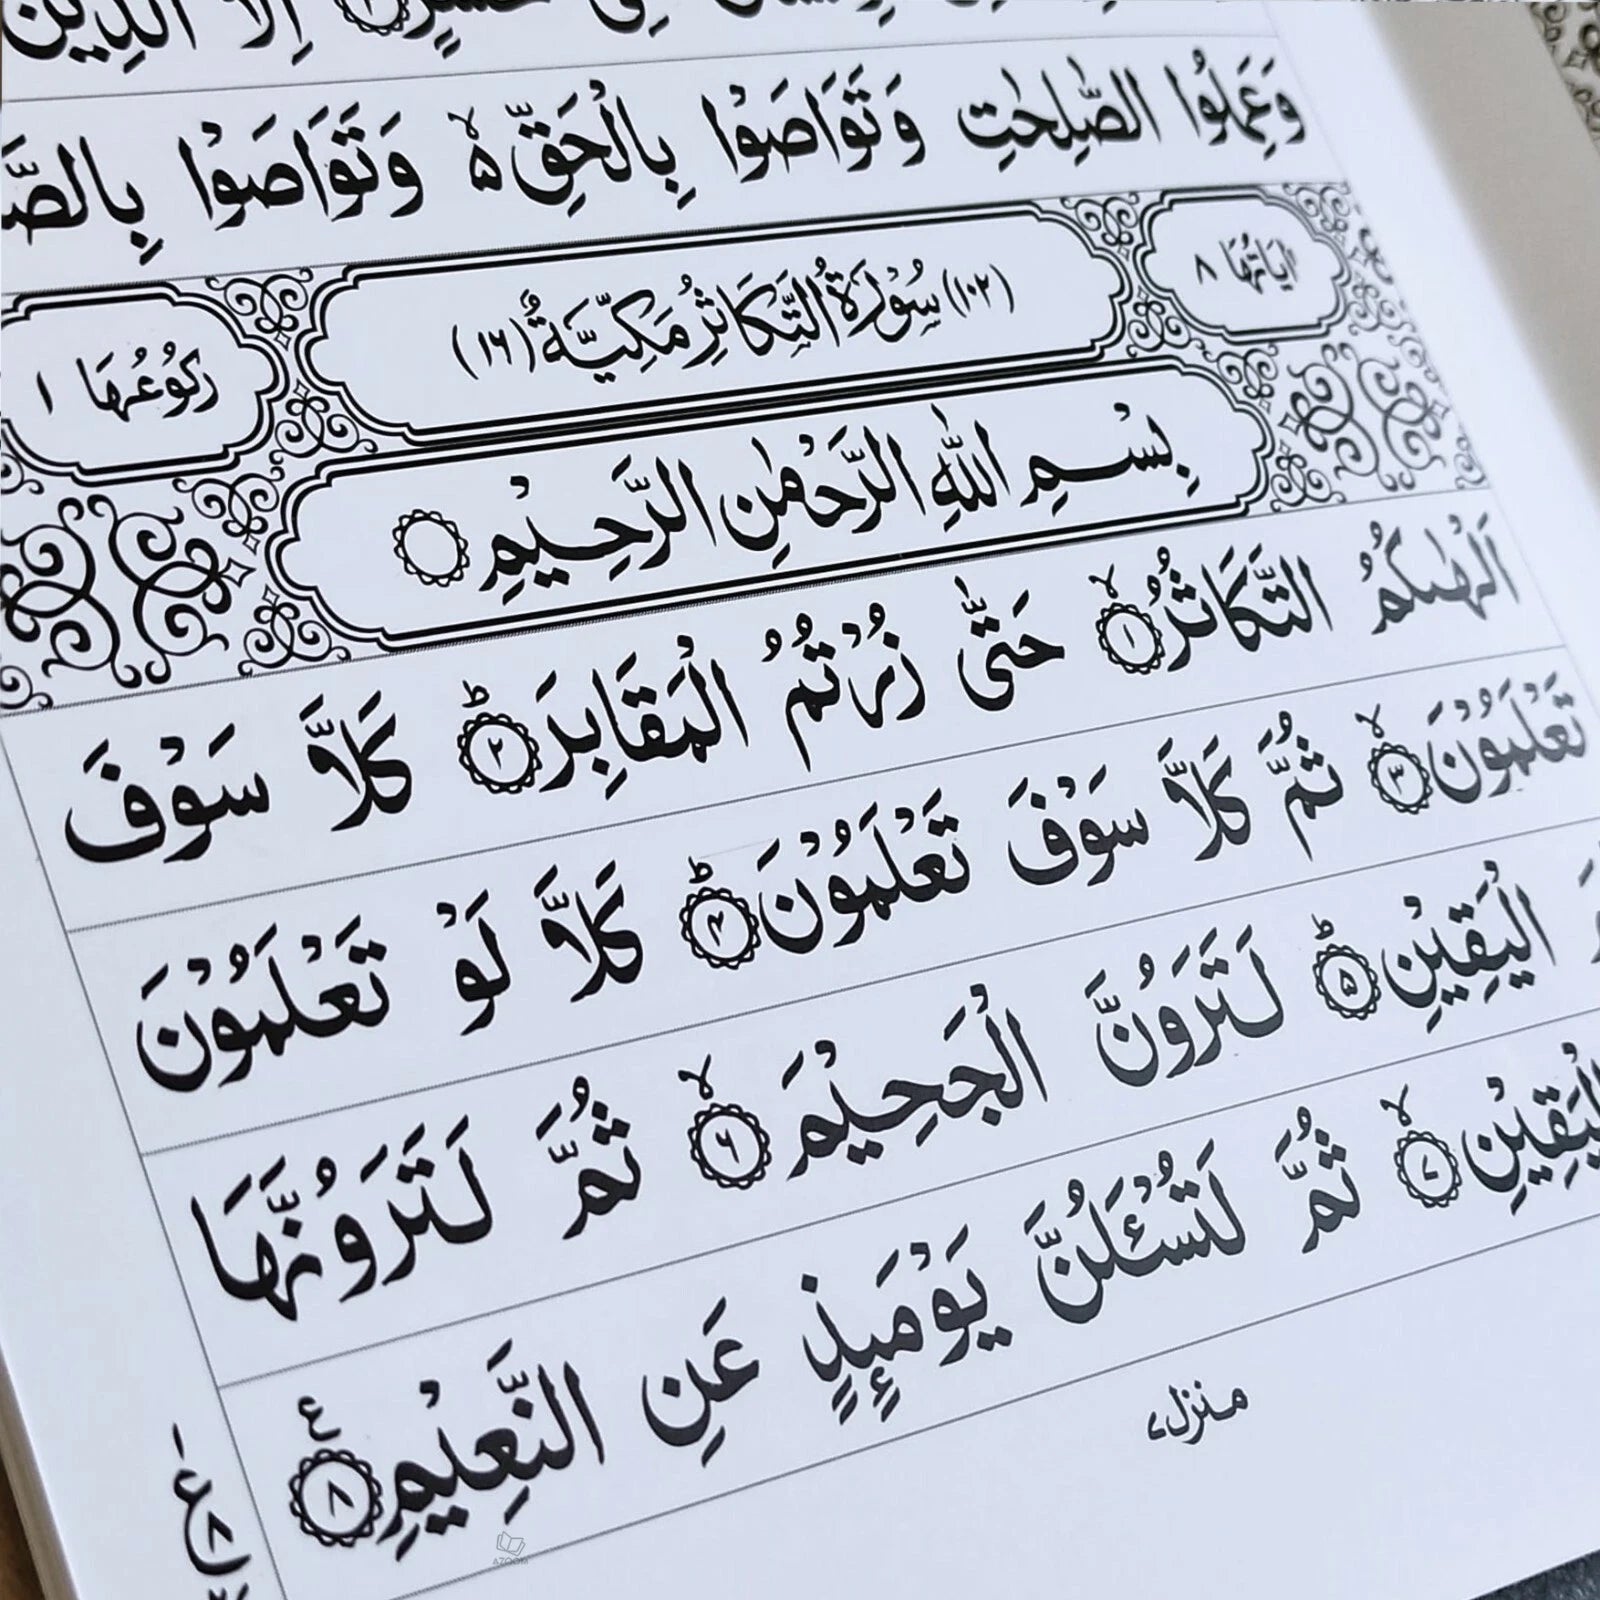 خُسْرٍ ۙ﴿۲﴾ اِلَّا الَّذِيْنَ
وَعَمِلُوا الصّٰلِحٰتِ وَتَوَاصَوْا بِالْحَقِّ ۙ۬ وَتَوَاصَوْا بِالصَّ
اٰيَاتُهَا ۸ (۱۰۲) سُوْرَةُ التَّكَاثُرِ مَكِّيَّةٌ (۱۶) رُكُوْعُهَا ۱
بِسْمِ اللّٰهِ الرَّحْمٰنِ الرَّحِيْمِ
اَلْهٰىكُمُ التَّكَاثُرُ ۙ﴿۱﴾ حَتّٰى زُرْتُمُ الْمَقَابِرَ ؕ﴿۲﴾ كَلَّا سَوْفَ
تَعْلَمُوْنَ ۙ﴿۳﴾ ثُمَّ كَلَّا سَوْفَ تَعْلَمُوْنَ ؕ﴿۴﴾ كَلَّا لَوْ تَعْلَمُوْنَ
الْيَقِيْنِ ؕ﴿۵﴾ لَتَرَوُنَّ الْجَحِيْمَ ۙ﴿۶﴾ ثُمَّ لَتَرَوُنَّهَا
الْيَقِيْنِ ۙ﴿۷﴾ ثُمَّ لَتُسْـَٔلُنَّ يَوْمَىِٕذٍ عَنِ النَّعِيْمِ ﴿۸﴾
منزل ۷
AZOOM